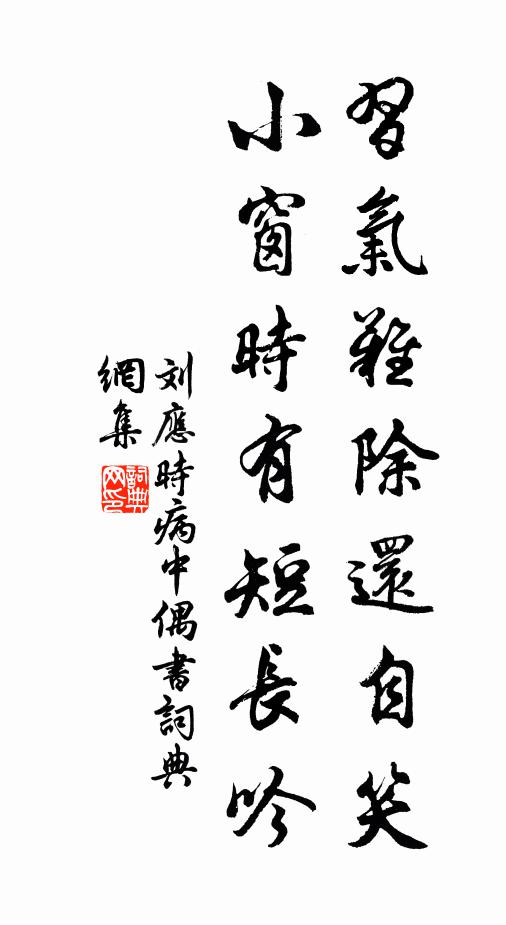 習氣難除還自笑
小窗時有短長吟
刘應時病中偶書詞典
網集
詞典網印